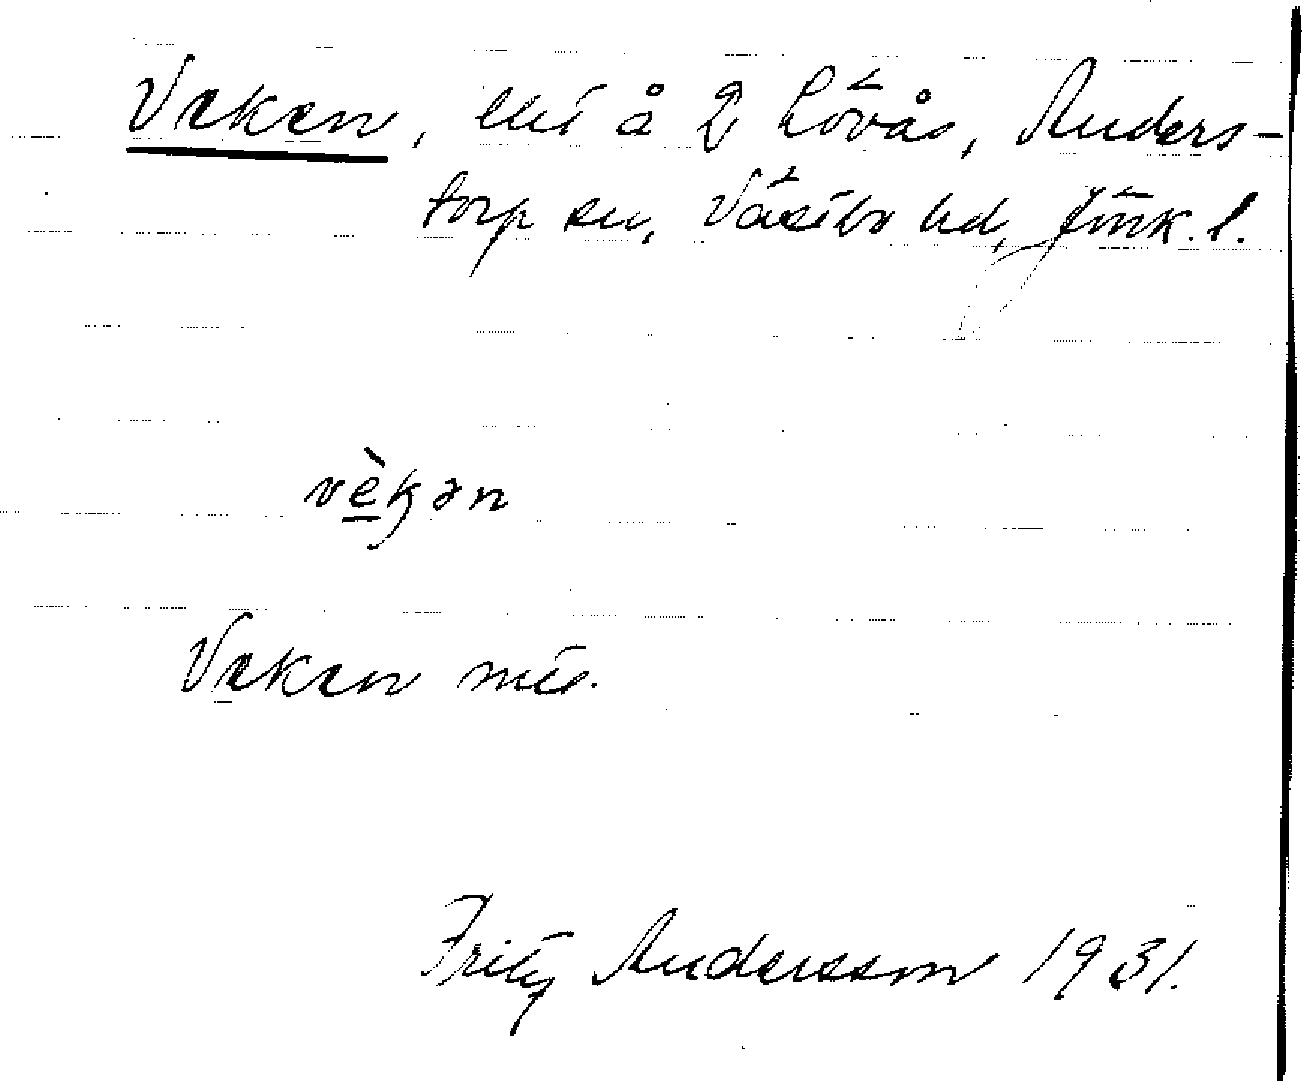 Veken, å 2 Lövås, Anders-
torp sn, Västbo hd, Jönk. l.
vèkən
Veken
Fritz Andersson 1931.